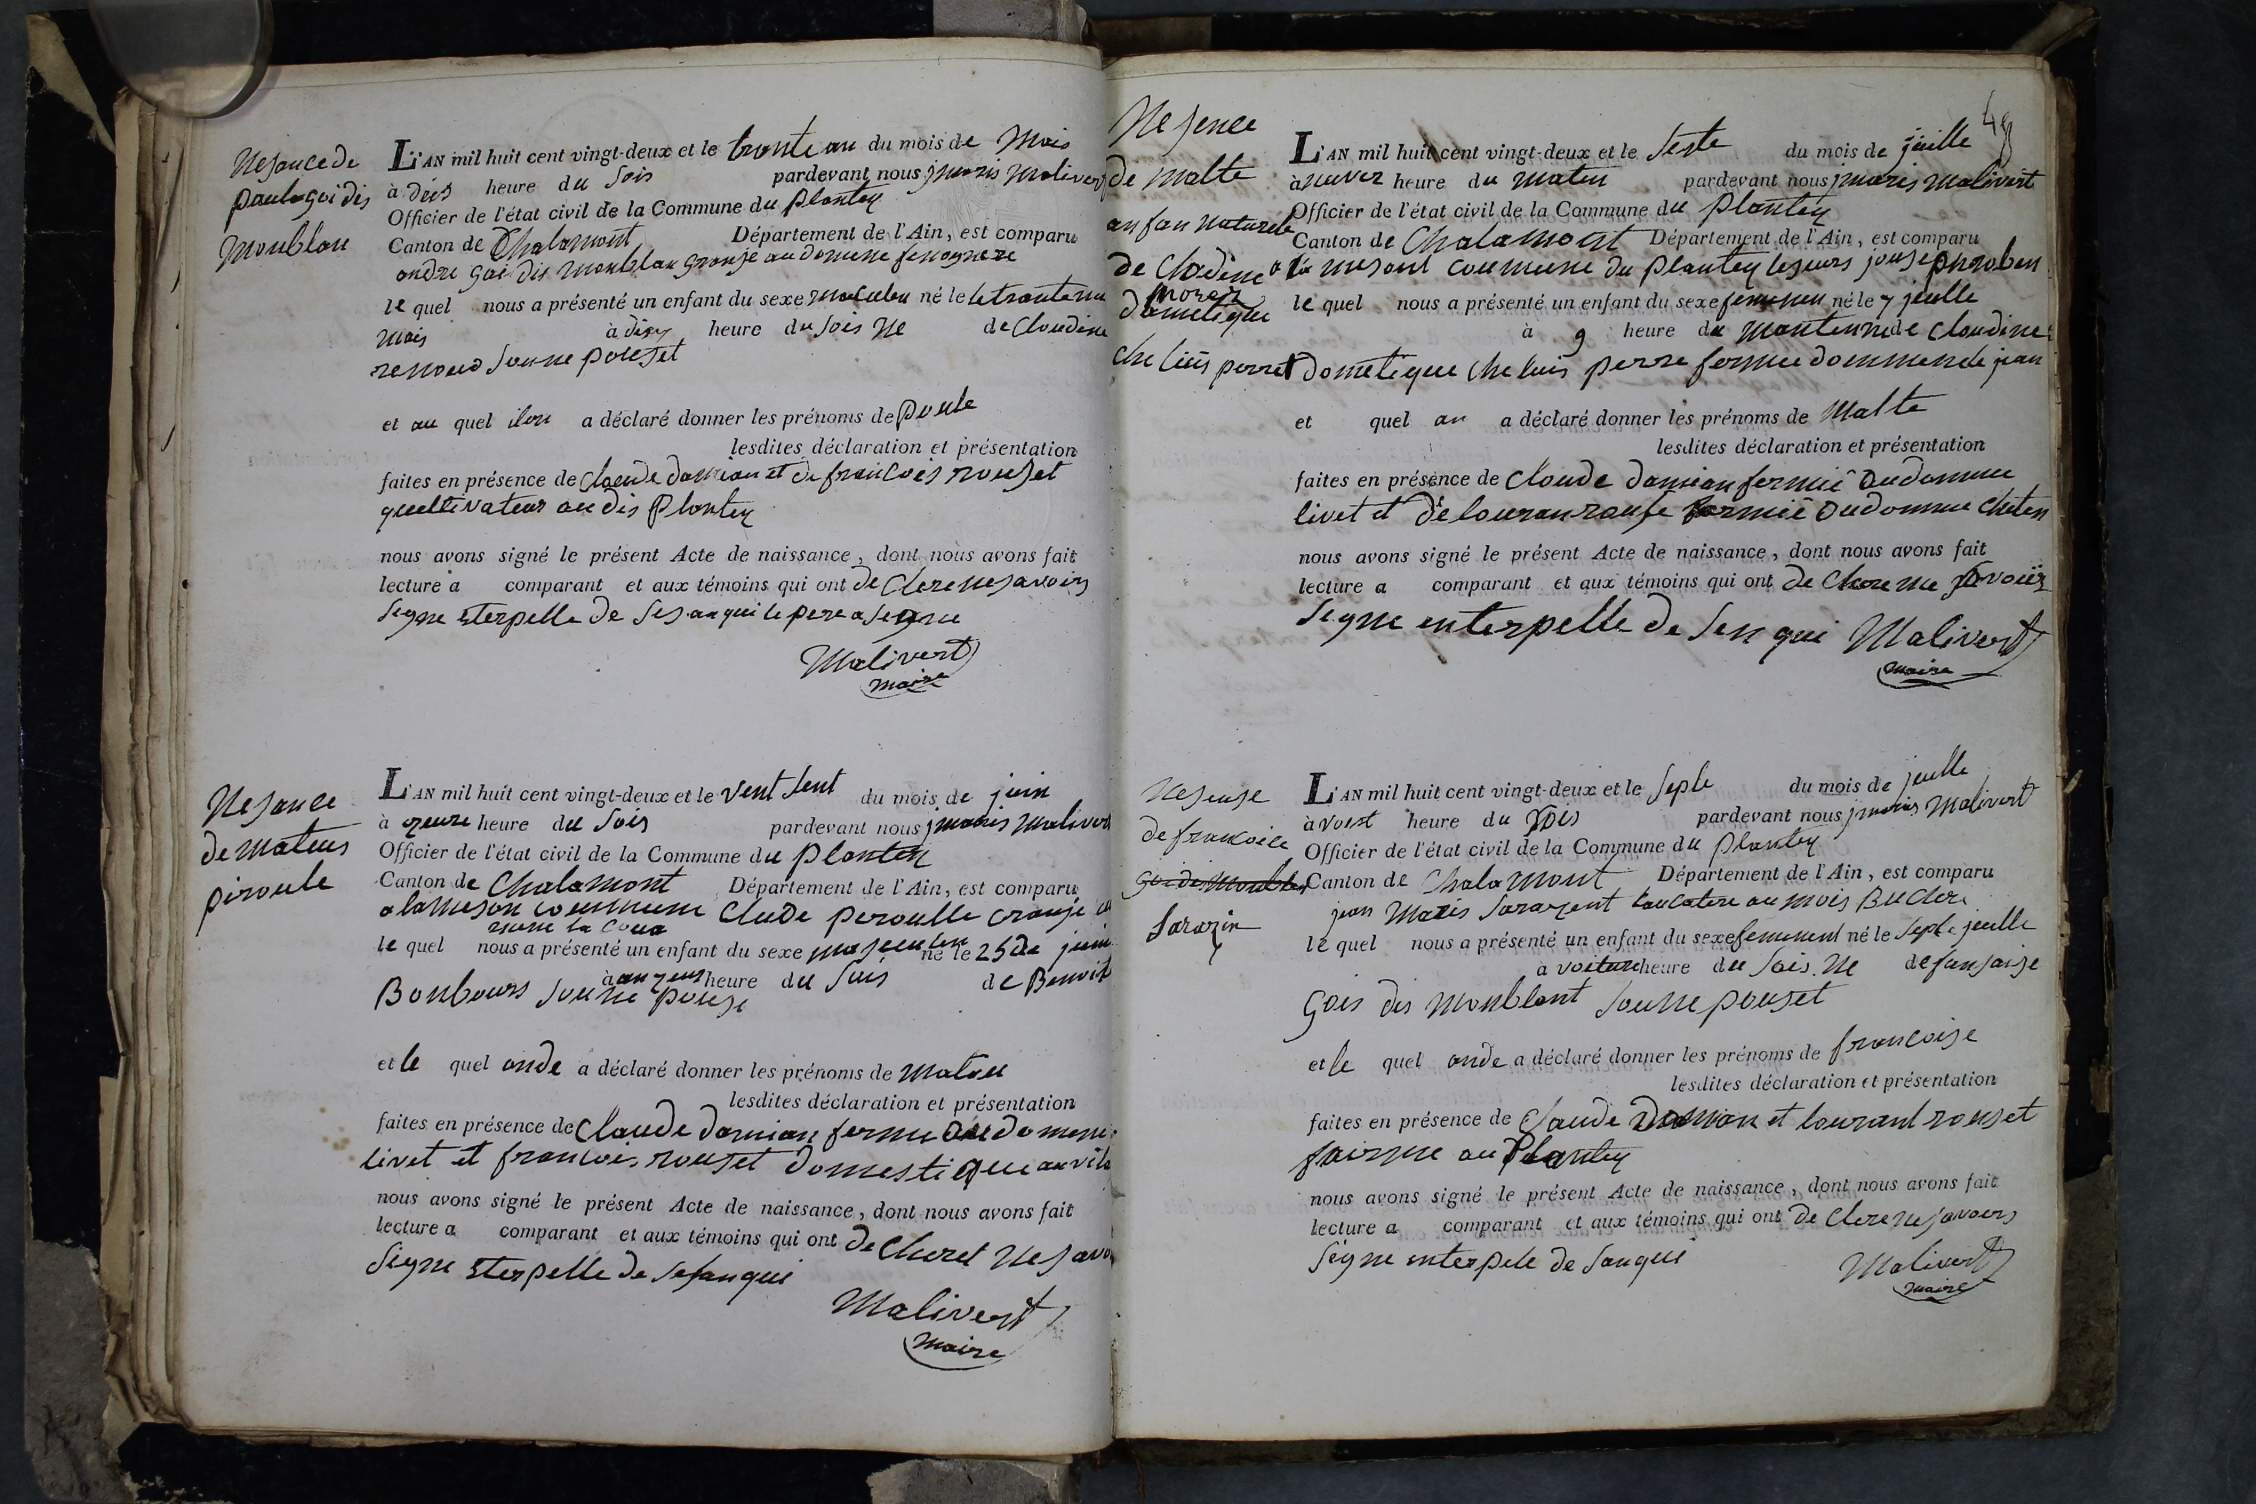 Nesance de
paule goi dis
monblan
L'AN mil huit cent vingt-deux et le trante un du mois de Mais
à dies heure du Sois pardevant nous jmaris Malivert
Officier de l'état civil de la Commune du Plantey
Canton de Chalamont Département de l'Ain, est comparu
andre goi dis monblan granje au domene
le quel nous a présenté un enfant du sexe masculen né le le trante un
mais à disy heure du Sois Ne de Claudine
renaud Soune pouset
et au quel ilon a déclaré donner les prénoms de poule
lesdites déclaration et présentation
faites en présence de Claude damian et de francois rouset
quelltivateur au dis Plantey
nous avons signé le présent Acte de naissance, dont nous avons fait
lecture a comparant et aux témoins qui ont de Clere ne savoirs
Segne sterpelle de Ses an qui le pere a Segne
Malivert
maire
Nesance
de mateus
piroule
L'AN mil huit cent vingt-deux et le vent Sent du mois de juin
à ozeure heure du Sois pardevant nous jmaris Malivert
Officier de l'état civil de la Commune du Plantey
Canton de Chalamont Département de l'Ain, est comparu
a la meson coummune Clude peroulle Cranje
nome la Coua
le quel nous a présenté un enfant du sexe masculen né le 25 de juin
à onzeus heure du Sois de Benoit
Bonbours Soune pouse
et le quel onde a déclaré donner les prénoms de Mateu
lesdites déclaration et présentation
faites en présence de Claude damian fermie Oudomene
livet et francois rouset domestique au vila
nous avons signé le présent Acte de naissance, dont nous avons fait
lecture a comparant et aux témoins qui ont de Cleret Ne Savo
Segne sterpelle de Sefanqui
Malivert
maire
48
Nesence
de malte
anfan naturele
de Cladine
morel
dometique
che luis perret
L'AN mil huit cent vingt-deux et le Seste du mois de juille
à neuvez heure du maten pardevant nous jmaris Malivert
Officier de l'état civil de la Commune du Plantey
Canton de Chalamont Département de l'Ain, est comparu
a la mesont coummune du Plantey leseurs jousep
le quel nous a présenté un enfant du sexe femenen né le 7 jeulle
à 9 heure du manten ne de Claudine
dometique che luis perre fermie dommende jean
et quel an a déclaré donner les prénoms de Malte
lesdites déclaration et présentation
faites en présence de Claude damian fermie Oudomene
livet et de louran rouse fermie Oudomene
nous avons signé le présent Acte de naissance, dont nous avons fait
lecture a comparant et aux témoins qui ont de Clere ne savoir
Segne enterpelle de Sen qui Malivert
maire
Nesense
de francoise
goi dis monblan
Sarazin
L'AN mil huit cent vingt-deux et le Septe du mois de jeulle
à voist heure du Sois pardevant nous jmaris Malivert
Officier de l'état civil de la Commune du Plantey
Canton de Chalamont Département de l'Ain, est comparu
jean Maris Sarazent Laucatere au mois
le quel nous a présenté un enfant du sexe femenent né le Septe jeulle
à voiture heure du Sois Ne de fansaise
gois dis monblant Soune pouset
et le quel onde a déclaré donner les prénoms de francoise
lesdites déclaration et présentation
faites en présence de Claude damian et lourant rouset
fairmie au Plantey
nous avons signé le présent Acte de naissance, dont nous avons fait
lecture a comparant et aux témoins qui ont de Clere ne savoirs
Segne enterpele de Sanqui
Malivert
maire